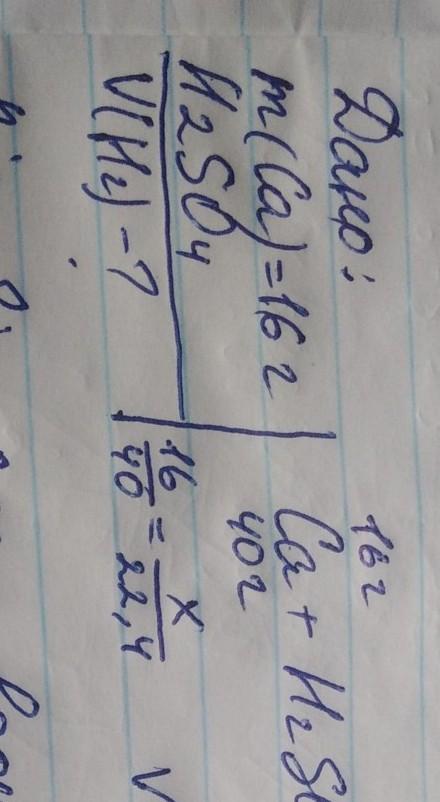 Дано:
m(Ca)=16г
H2SO4
V(H2)-?
16г
Ca + H2S
40г
16/40 = x/22,4
V